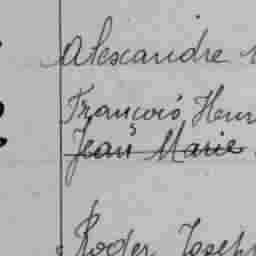 Alexandre
François, Henri
Jean Marie
Roder Joseph